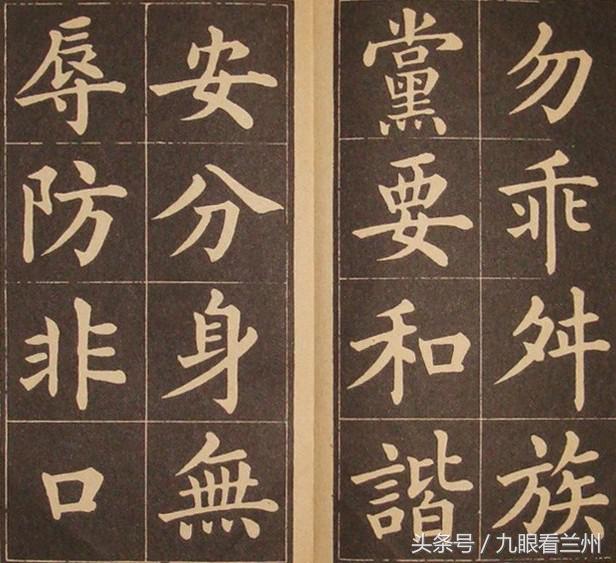 勿乖舛族
黨要和諧
安分身無
辱防非口
头条号 / 九眼看兰州